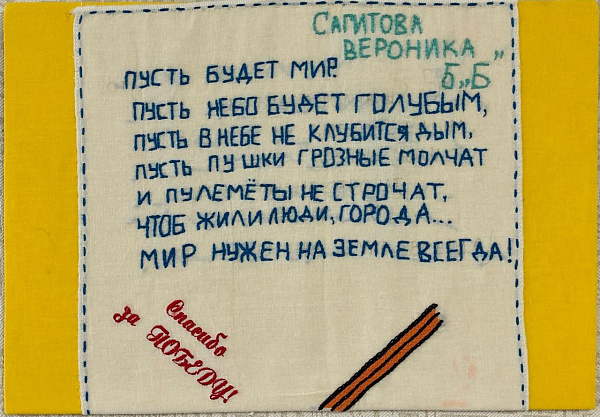 САГИТОВА
ВЕРОНИКА
Б„Б"
ПУСТЬ БУДЕТ МИР.
ПУСТЬ НЕБО БУДЕТ ГОЛУБЫМ,
ПУСТЬ В НЕБЕ НЕ КЛУБИТСЯ ДЫМ,
ПУСТЬ ПУШКИ ГРОЗНЫЕ МОЛЧАТ
И ПУЛЕМЁТЫ НЕ СТРОЧАТ,
ЧТОБ ЖИЛИ ЛЮДИ, ГОРОДА...
МИР НУЖЕН НА ЗЕМЛЕ ВСЕГДА!
Спасибо
за ПОБЕДУ!